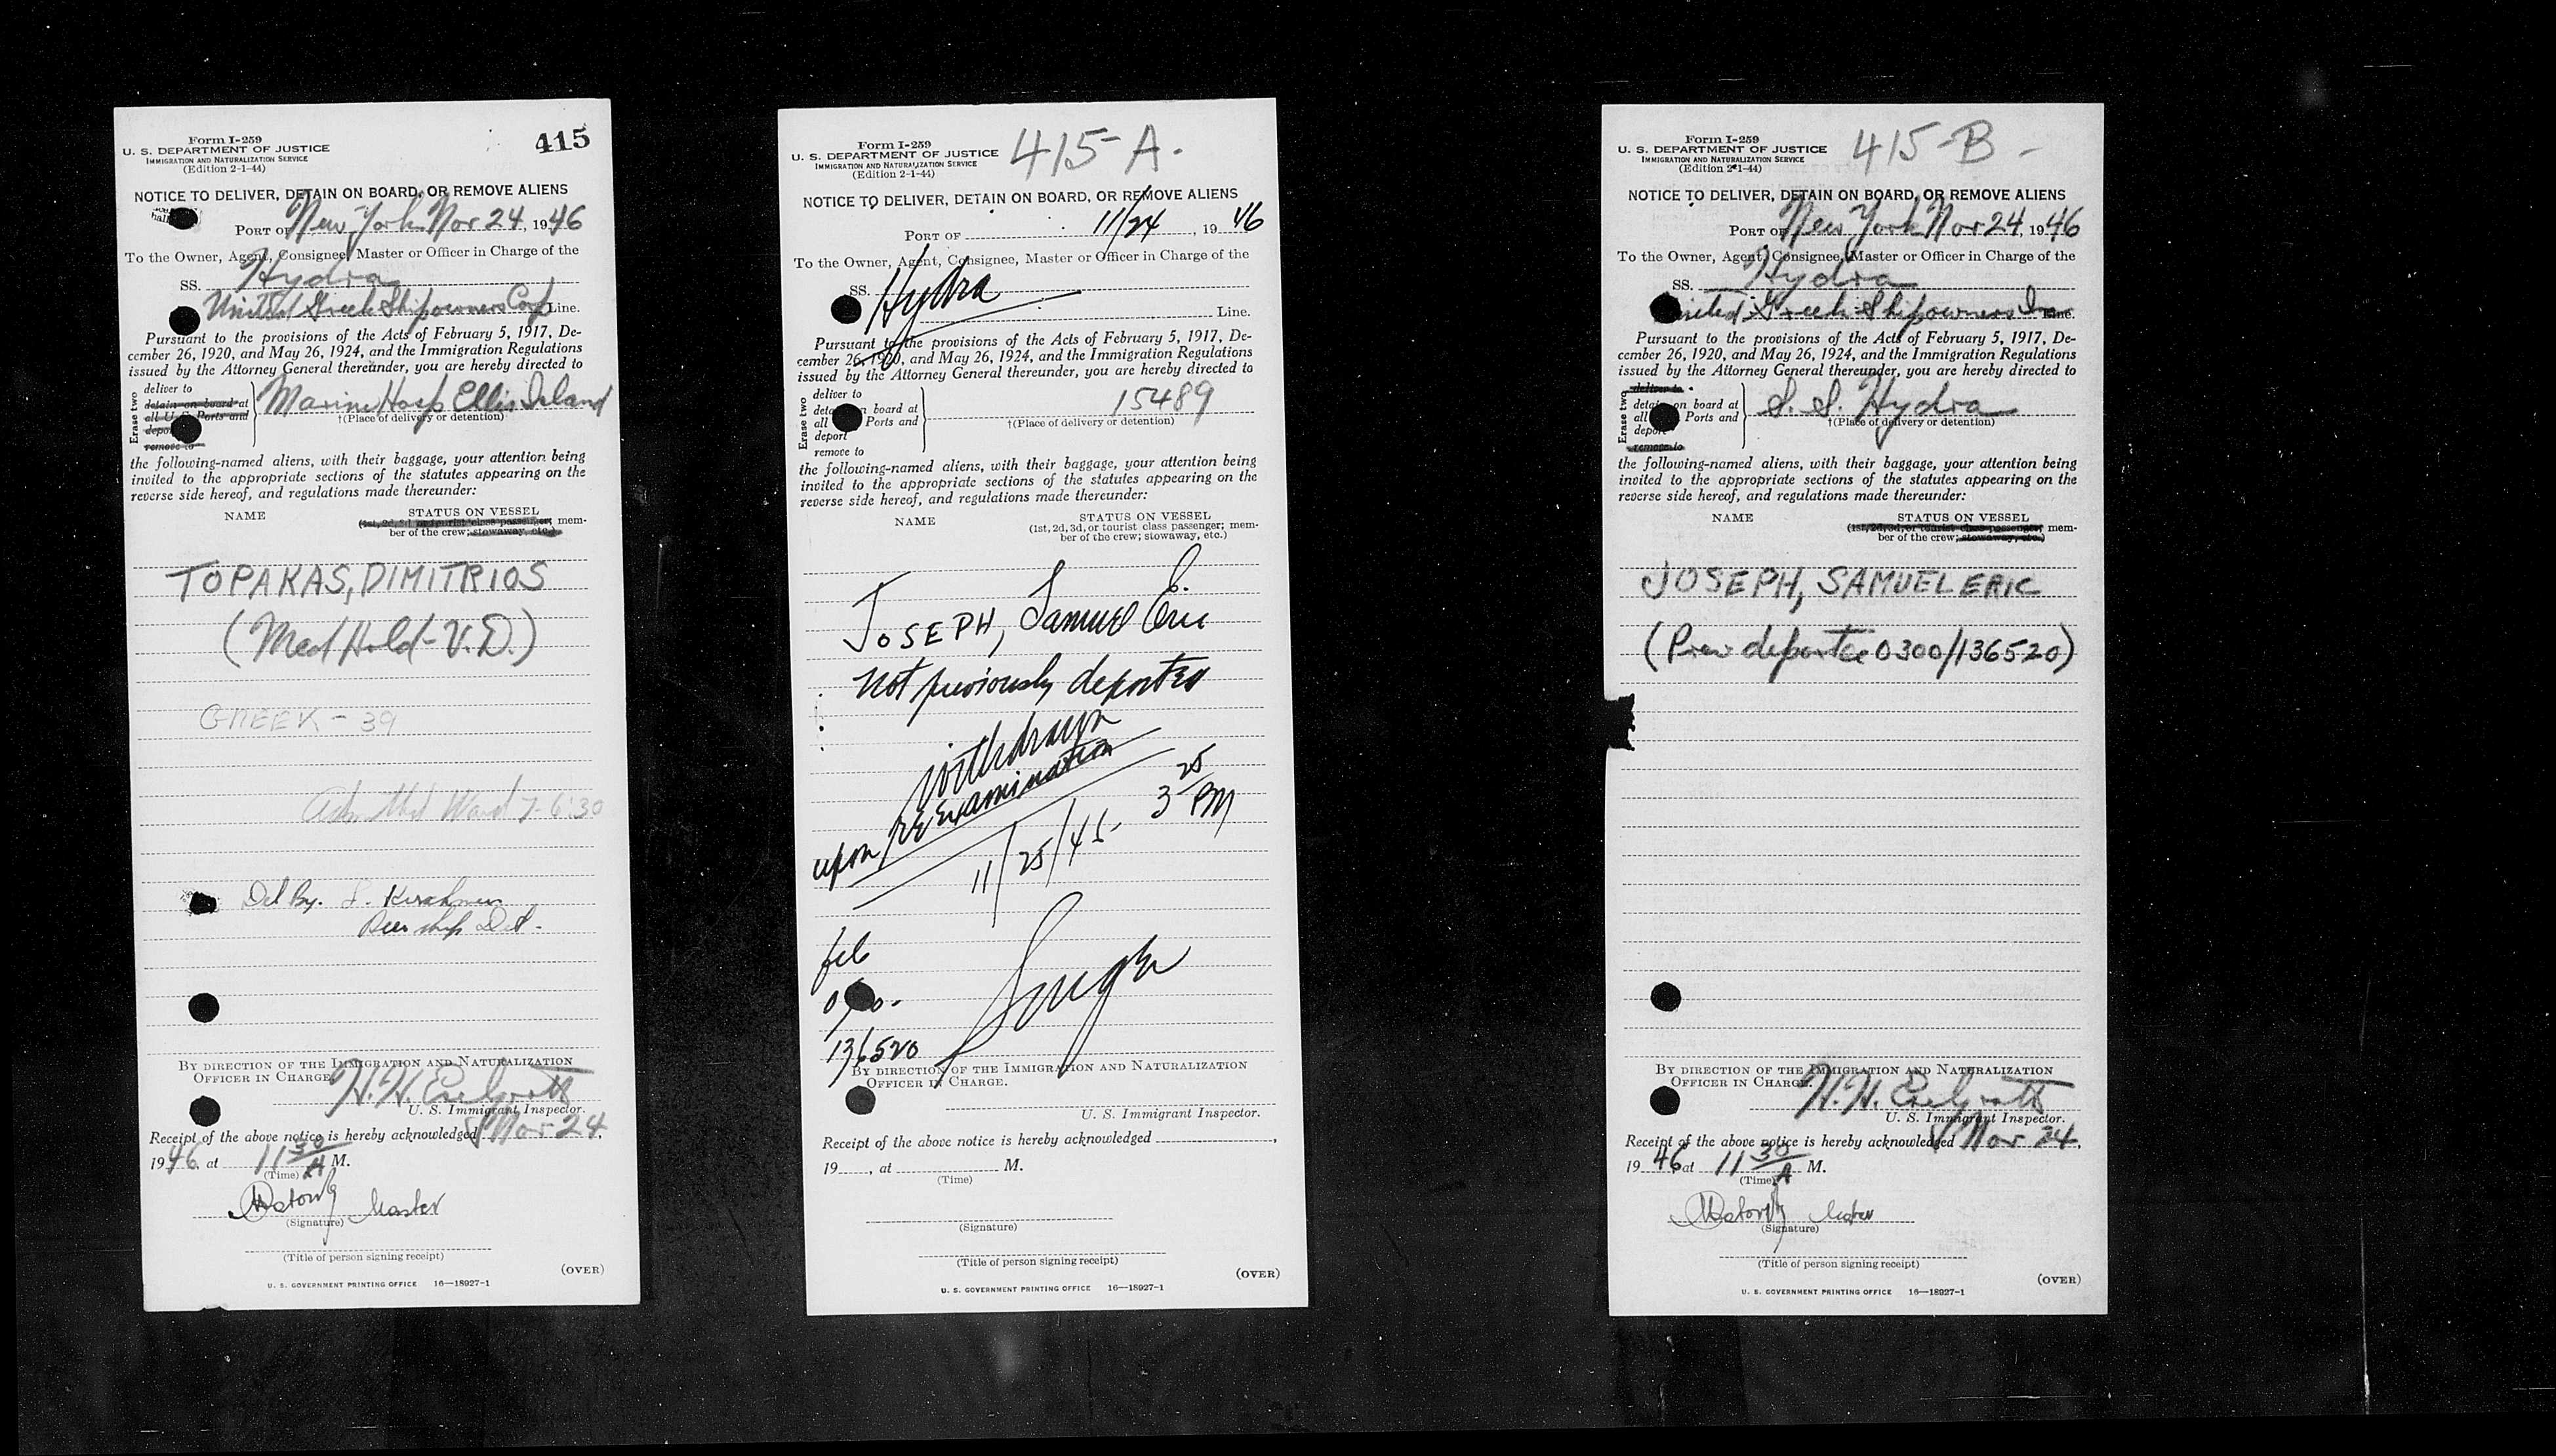 Form I-259
U. S. DEPARTMENT OF JUSTICE
IMMIGRATION AND NATURALIZATION SERVICE
(Edition 2-1-44)
415
NOTICE TO DELIVER, DETAIN ON BOARD, OR REMOVE ALIENS
PORT OF New York Nov 24, 1946
To the Owner, Agent, Consignee, Master or Officer in Charge of the
SS. Hydra
United Greek Shipowners Corp Line.
Pursuant to the provisions of the Acts of February 5, 1917, De-
cember 26, 1920, and May 26, 1924, and the Immigration Regulations
issued by the Attorney General thereunder, you are hereby directed to
Erase two
deliver to
detain on board at
all U.S. Ports and
depo
remove to
Marine Hosp Ellis Island
†(Place of delivery or detention)
the following-named aliens, with their baggage, your attention being
invited to the appropriate sections of the statutes appearing on the
reverse side hereof, and regulations made thereunder:
NAME STATUS ON VESSEL
(1st, 2d, 3d, or tourist class passenger; mem-
ber of the crew; stowaway, etc.)
TOPAKAS, DIMITRIOS
(Med Hold - V.D.)
GREEK - 39
Admitted Ward 7- 6:30
Del By.
BY DIRECTION OF THE IMMIGRATION AND NATURALIZATION
OFFICER IN CHARGE.
H. H.
U. S. Immigrant Inspector.
Receipt of the above notice is hereby acknowledged Nov 24,
1946, at 11 30 A M.
(Time)
Master
(Signature)
(Title of person signing receipt)
(OVER)
U. S. GOVERNMENT PRINTING OFFICE 16—18927-1
Form I-259
U. S. DEPARTMENT OF JUSTICE
IMMIGRATION AND NATURALIZATION SERVICE
(Edition 2-1-44)
415-A.
NOTICE TO DELIVER, DETAIN ON BOARD, OR REMOVE ALIENS
PORT OF 11/24, 1946
To the Owner, Agent, Consignee, Master or Officer in Charge of the
SS. Hydra
Line.
Pursuant to the provisions of the Acts of February 5, 1917, De-
cember 26, 1920, and May 26, 1924, and the Immigration Regulations
issued by the Attorney General thereunder, you are hereby directed to
Erase two
deliver to
deta n board at
all Ports and
deport
remove to
15489
†(Place of delivery or detention)
the following-named aliens, with their baggage, your attention being
invited to the appropriate sections of the statutes appearing on the
reverse side hereof, and regulations made thereunder:
NAME STATUS ON VESSEL
(1st, 2d, 3d, or tourist class passenger; mem-
ber of the crew; stowaway, etc.)
E.
JOSEPH, Samuel Eric
Not previously deported
withdrawn
upon reexamination
11/25/46. 3 25 PM
136520
BY DIRECTION OF THE IMMIGRATION AND NATURALIZATION
OFFICER IN CHARGE.
U. S. Immigrant Inspector.
Receipt of the above notice is hereby acknowledged ,
19 , at M.
(Time)
(Signature)
(Title of person signing receipt)
(OVER)
U. S. GOVERNMENT PRINTING OFFICE 16—18927-1
Form I-259
U. S. DEPARTMENT OF JUSTICE
IMMIGRATION AND NATURALIZATION SERVICE
(Edition 2-1-44)
415-B-
NOTICE TO DELIVER, DETAIN ON BOARD, OR REMOVE ALIENS
PORT OF New York Nov 24, 1946
To the Owner, Agent, Consignee, Master or Officer in Charge of the
SS. Hydra
United Greek Shipowners Line.
Pursuant to the provisions of the Acts of February 5, 1917, De-
cember 26, 1920, and May 26, 1924, and the Immigration Regulations
issued by the Attorney General thereunder, you are hereby directed to
Erase two
deliver to
deta on board at
all Ports and
depor
remove to
S. S. Hydra
†(Place of delivery or detention)
the following-named aliens, with their baggage, your attention being
invited to the appropriate sections of the statutes appearing on the
reverse side hereof, and regulations made thereunder:
NAME STATUS ON VESSEL
(1st, 2d, 3d, or tourist class passenger; mem-
ber of the crew; stowaway, etc.)
JOSEPH, SAMUEL ERIC
(Prev deportee 0300/136520)
BY DIRECTION OF THE IMMIGRATION AND NATURALIZATION
OFFICER IN CHARGE.
H. H.
U. S. Immigrant Inspector.
Receipt of the above notice is hereby acknowledged Nov 24,
1946 at 11 30 A M.
(Time)
Master
(Signature)
(Title of person signing receipt)
(OVER)
U. S. GOVERNMENT PRINTING OFFICE 16—18927-1